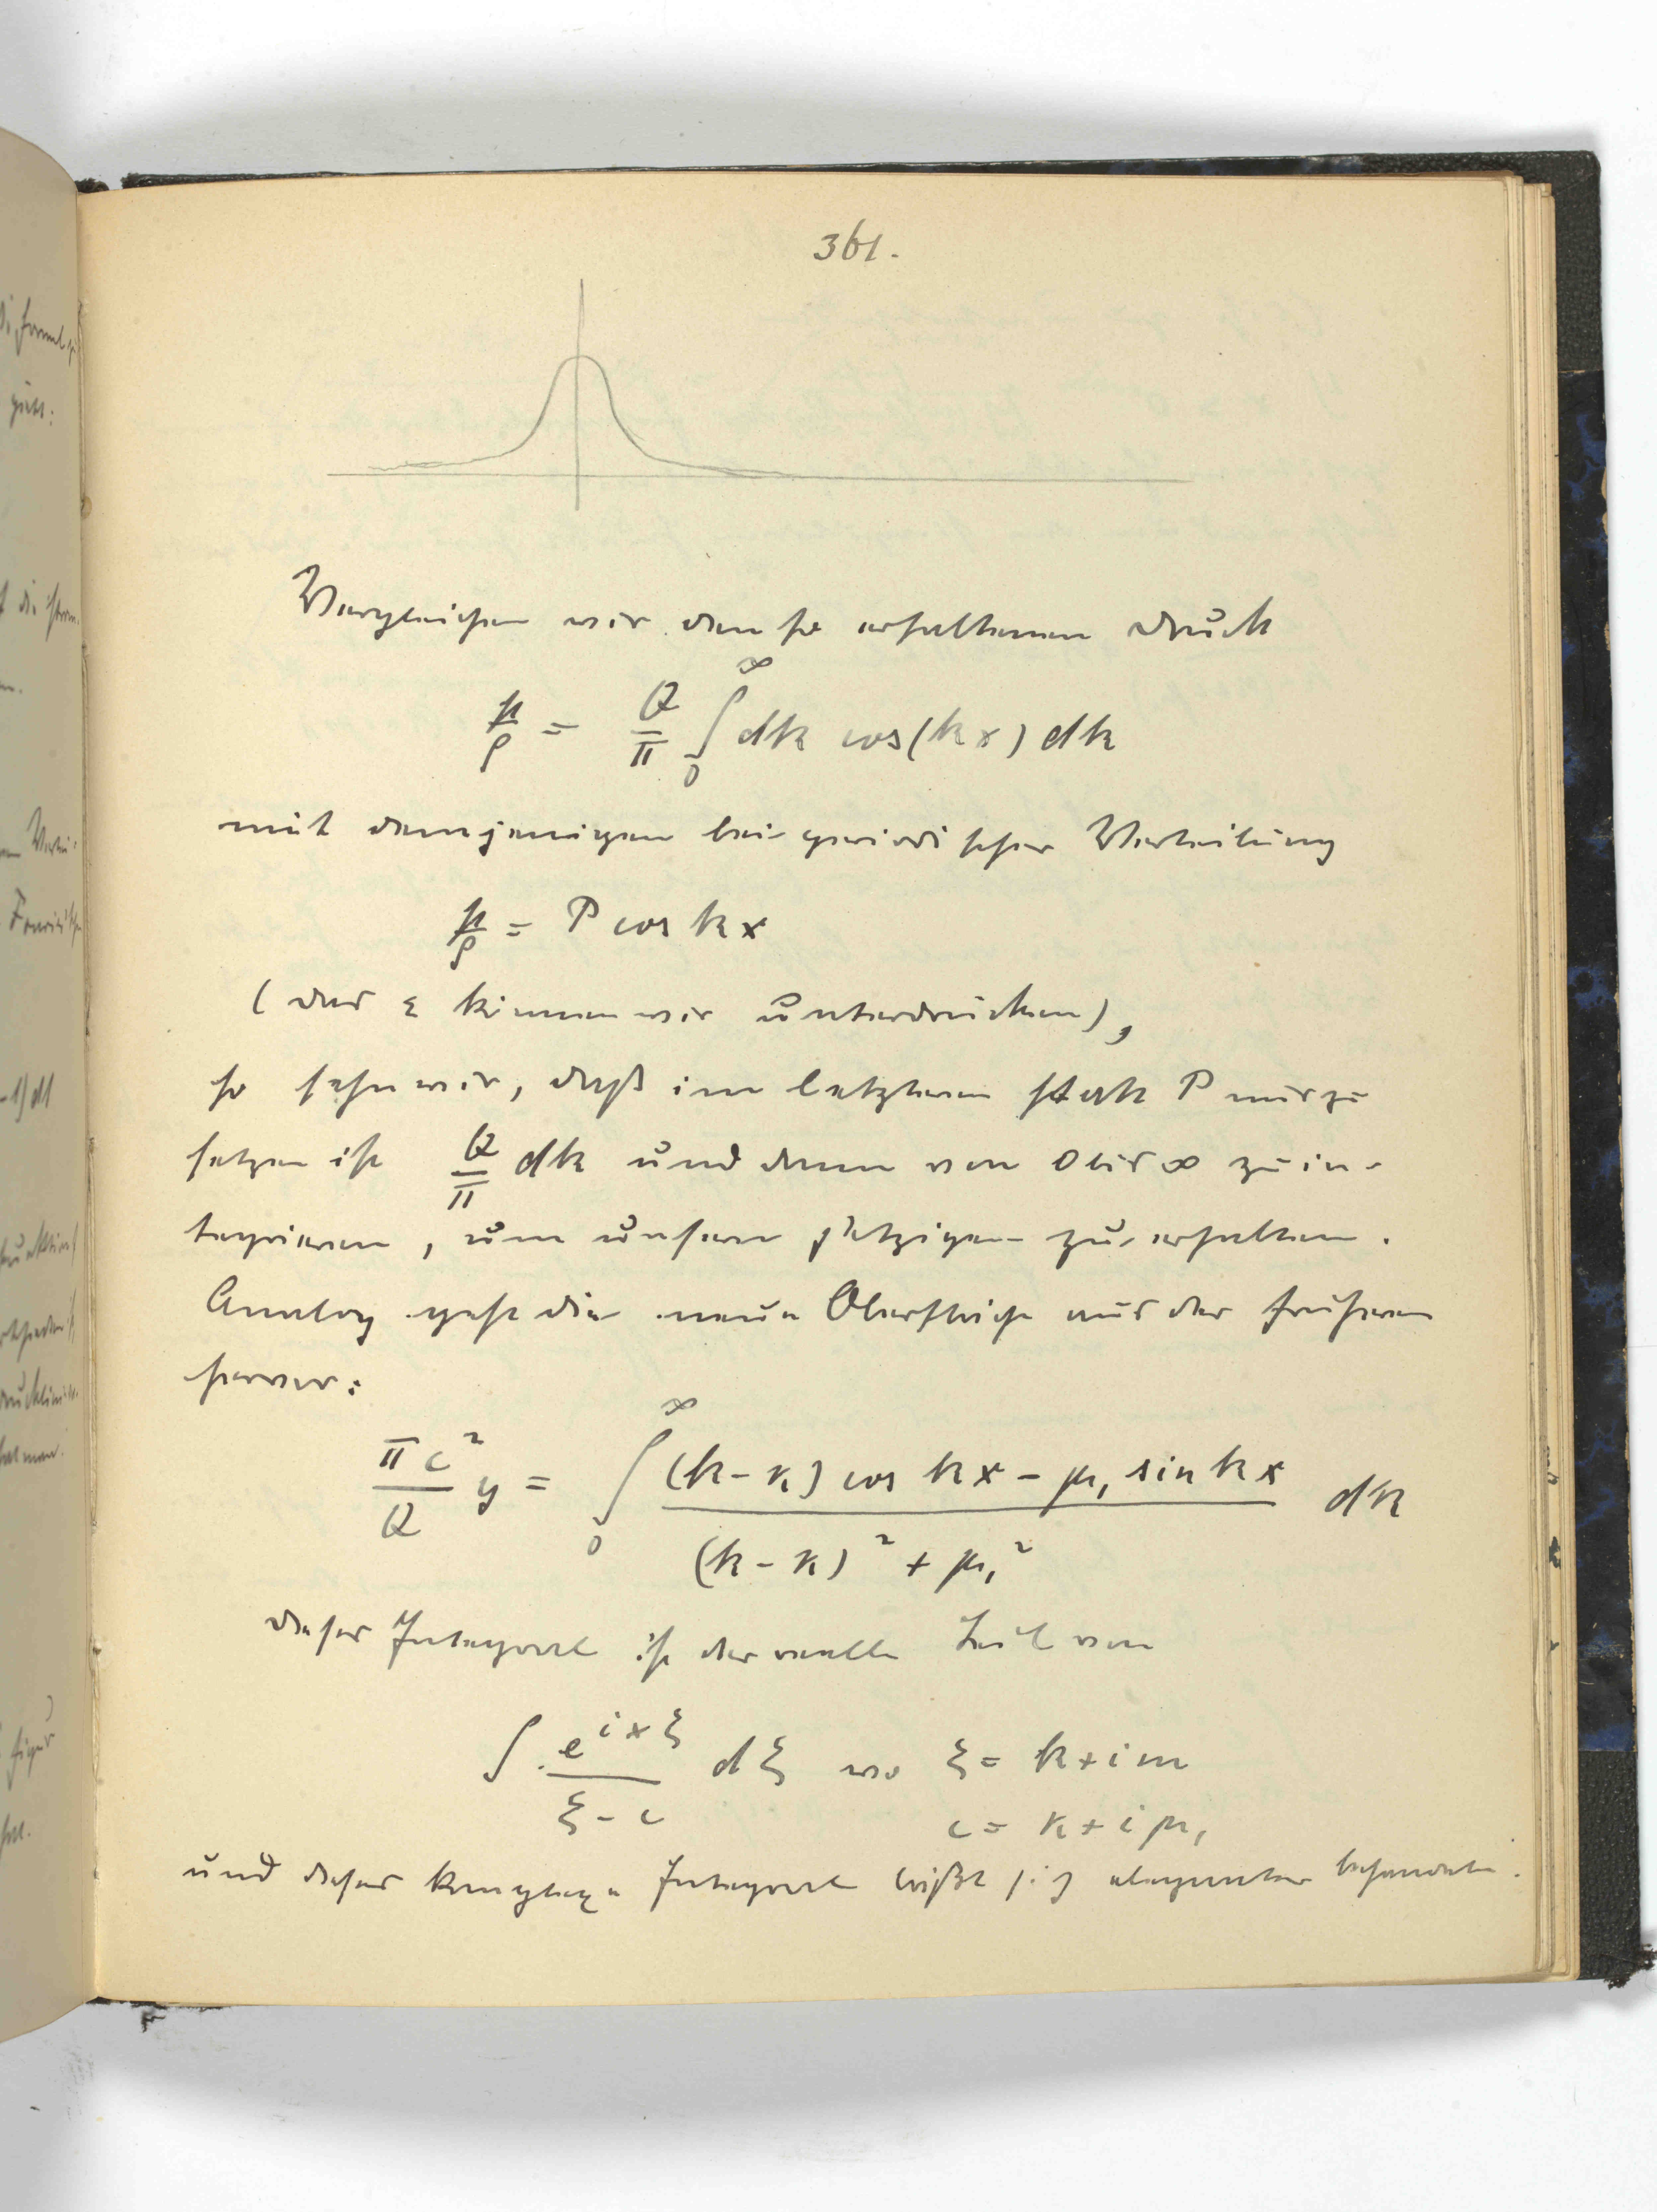 361.
Vergleichen wir den so erhaltenen Druck
p/ρ = Q/π ∫₀^∞ dk cos(kx) dk
mit demjenigen bei periodischer Verteilung
p/ρ = P cos kx
(das ε können wir unterdrücken),
so sehn wir, daß im letzteren statt P nur zu
setzen ist Q/π dk und dann von 0 bis ∞ zu in-
tegrieren, um unsern jetzigen zu erhalten.
Analog geht die neue Oberfläche aus der früheren
hervor:
πc²/Q y = ∫₀^∞ ((k-κ) cos kx - μ₁ sin kx)/((k-κ)² + μ₁²) dk
Dieses Integral ist der reelle Teil von
∫ e^{ixξ}/(ξ-c) dξ wo ξ = k+im
c = κ+iμ₁
und dieses komplexe Integral läßt sich eleganter behandeln.